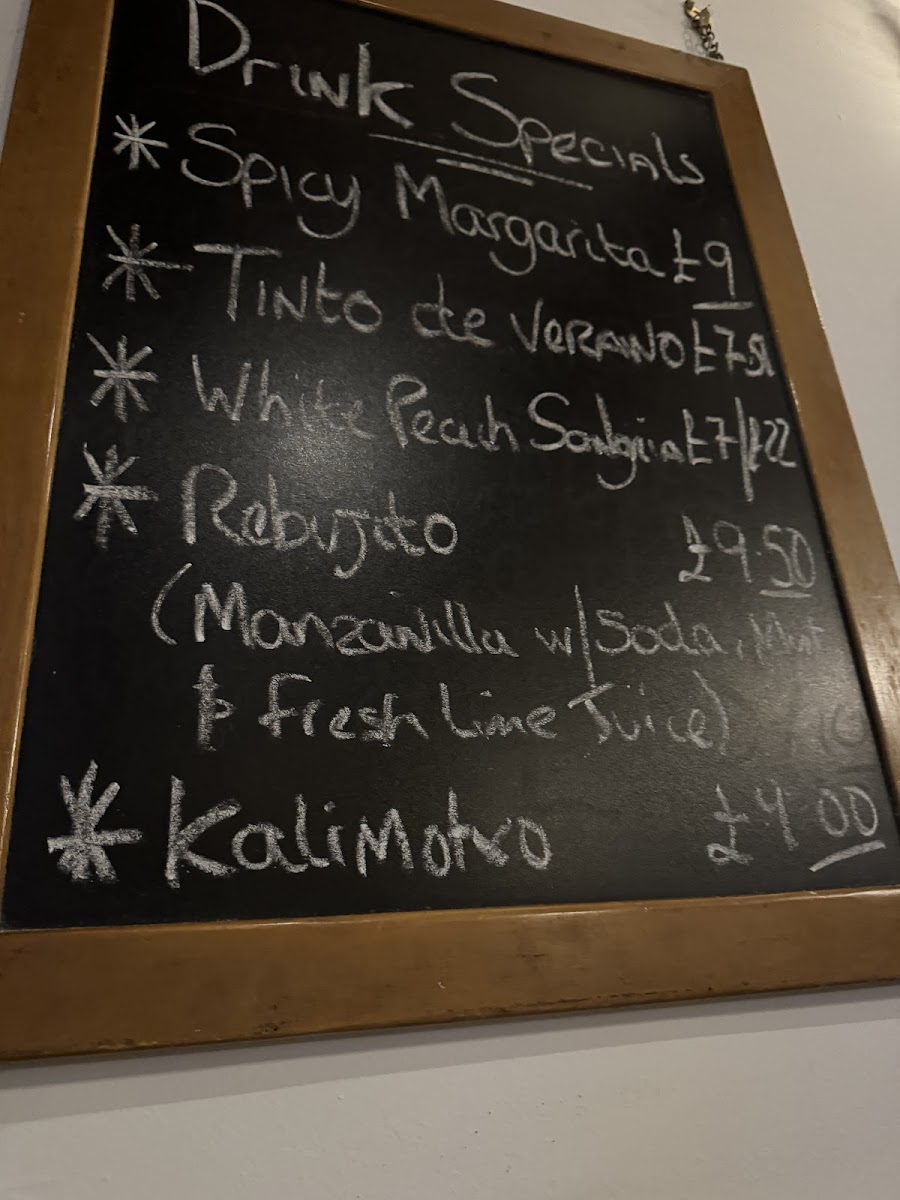 Drink Specials
* Spicy Margarita £9
* Tinto de Verano £7.50
* White Peach Sangria £7/£22
* Rebujito £9.50
(Manzanilla w/ Soda, Mint
& fresh Lime Juice)
* Kalimotxo £9.00